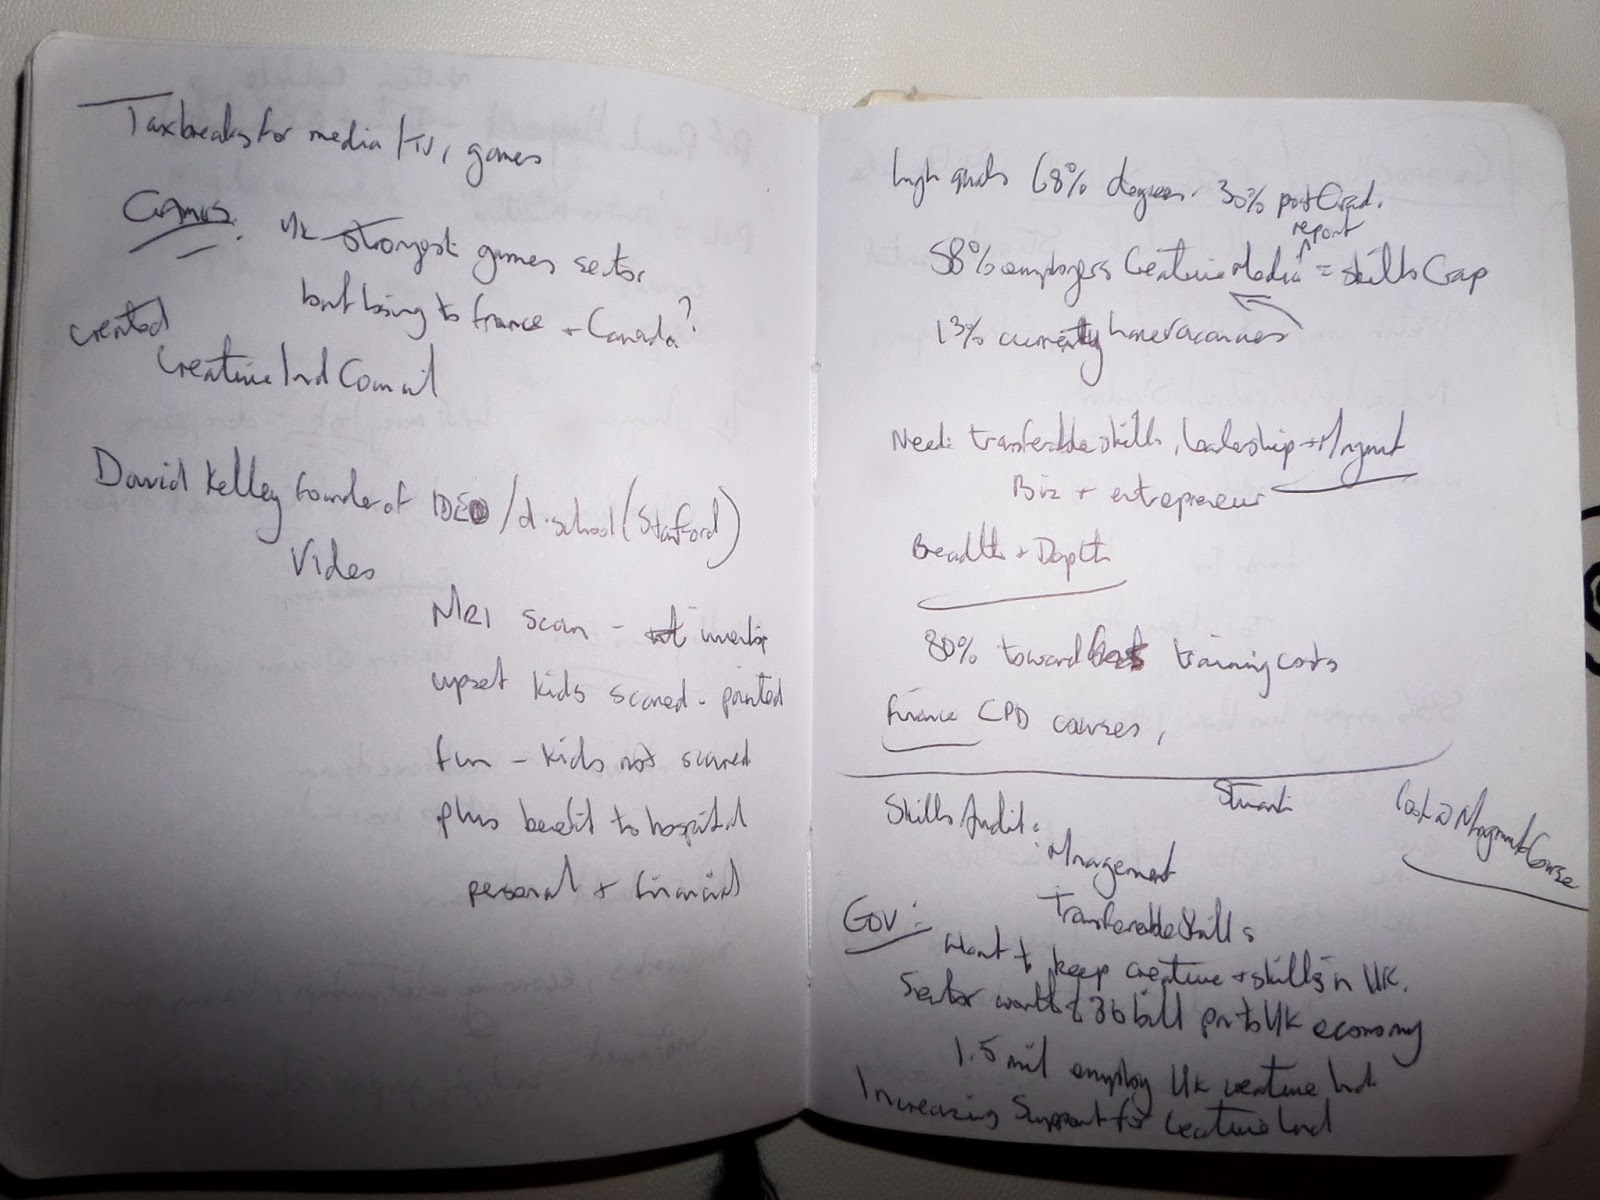 Tax breaks for media / TV, games
Games. UK strongest games sector
but losing to France + Canada?
created
Creative Ind Council
David Kelley founder of IDEO / d.school (Stanford)
Video
MRI scan - inventor
upset kids scared - painted
fun - kids not scared
plus benefit to hospital
personal + financial
high quals 68% degrees. 30% postGrad.
report
58% employers Creative Media = skills Gap
13% currently have vacancies
Need: transferable skills, leadership + Mngmnt
Biz + entrepreneur
Breadth + Depth
80% toward training costs
finance CPD courses,
Skills Audit:
Management
Transferable Skills
Stuart
Look @ Mngmnt Course
Gov:
Want to keep creative + skills in UK.
Sector worth £36 bill pa to UK economy
1.5 mil employ UK creative Ind.
Increasing Support for Creative Ind